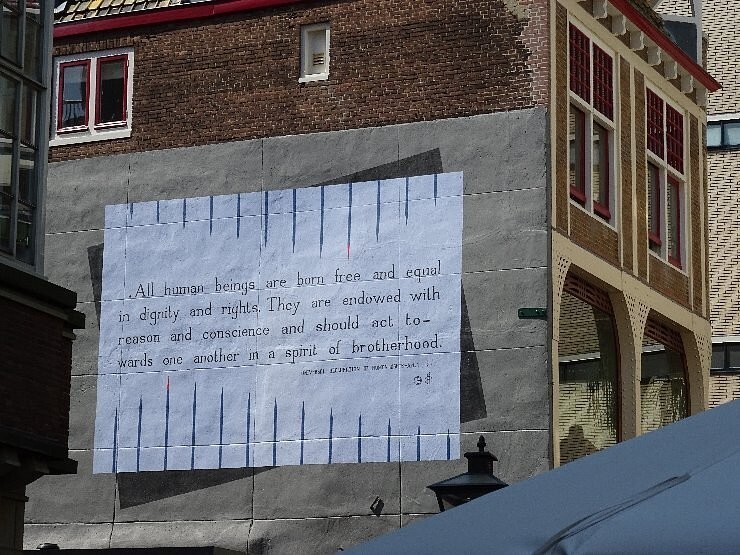 All human beings are born free and equal
in dignity and rights. They are endowed with
reason and conscience and should act to-
wards one another in a spirit of brotherhood.
UNIVERSAL DECLARATION OF HUMAN RIGHTS